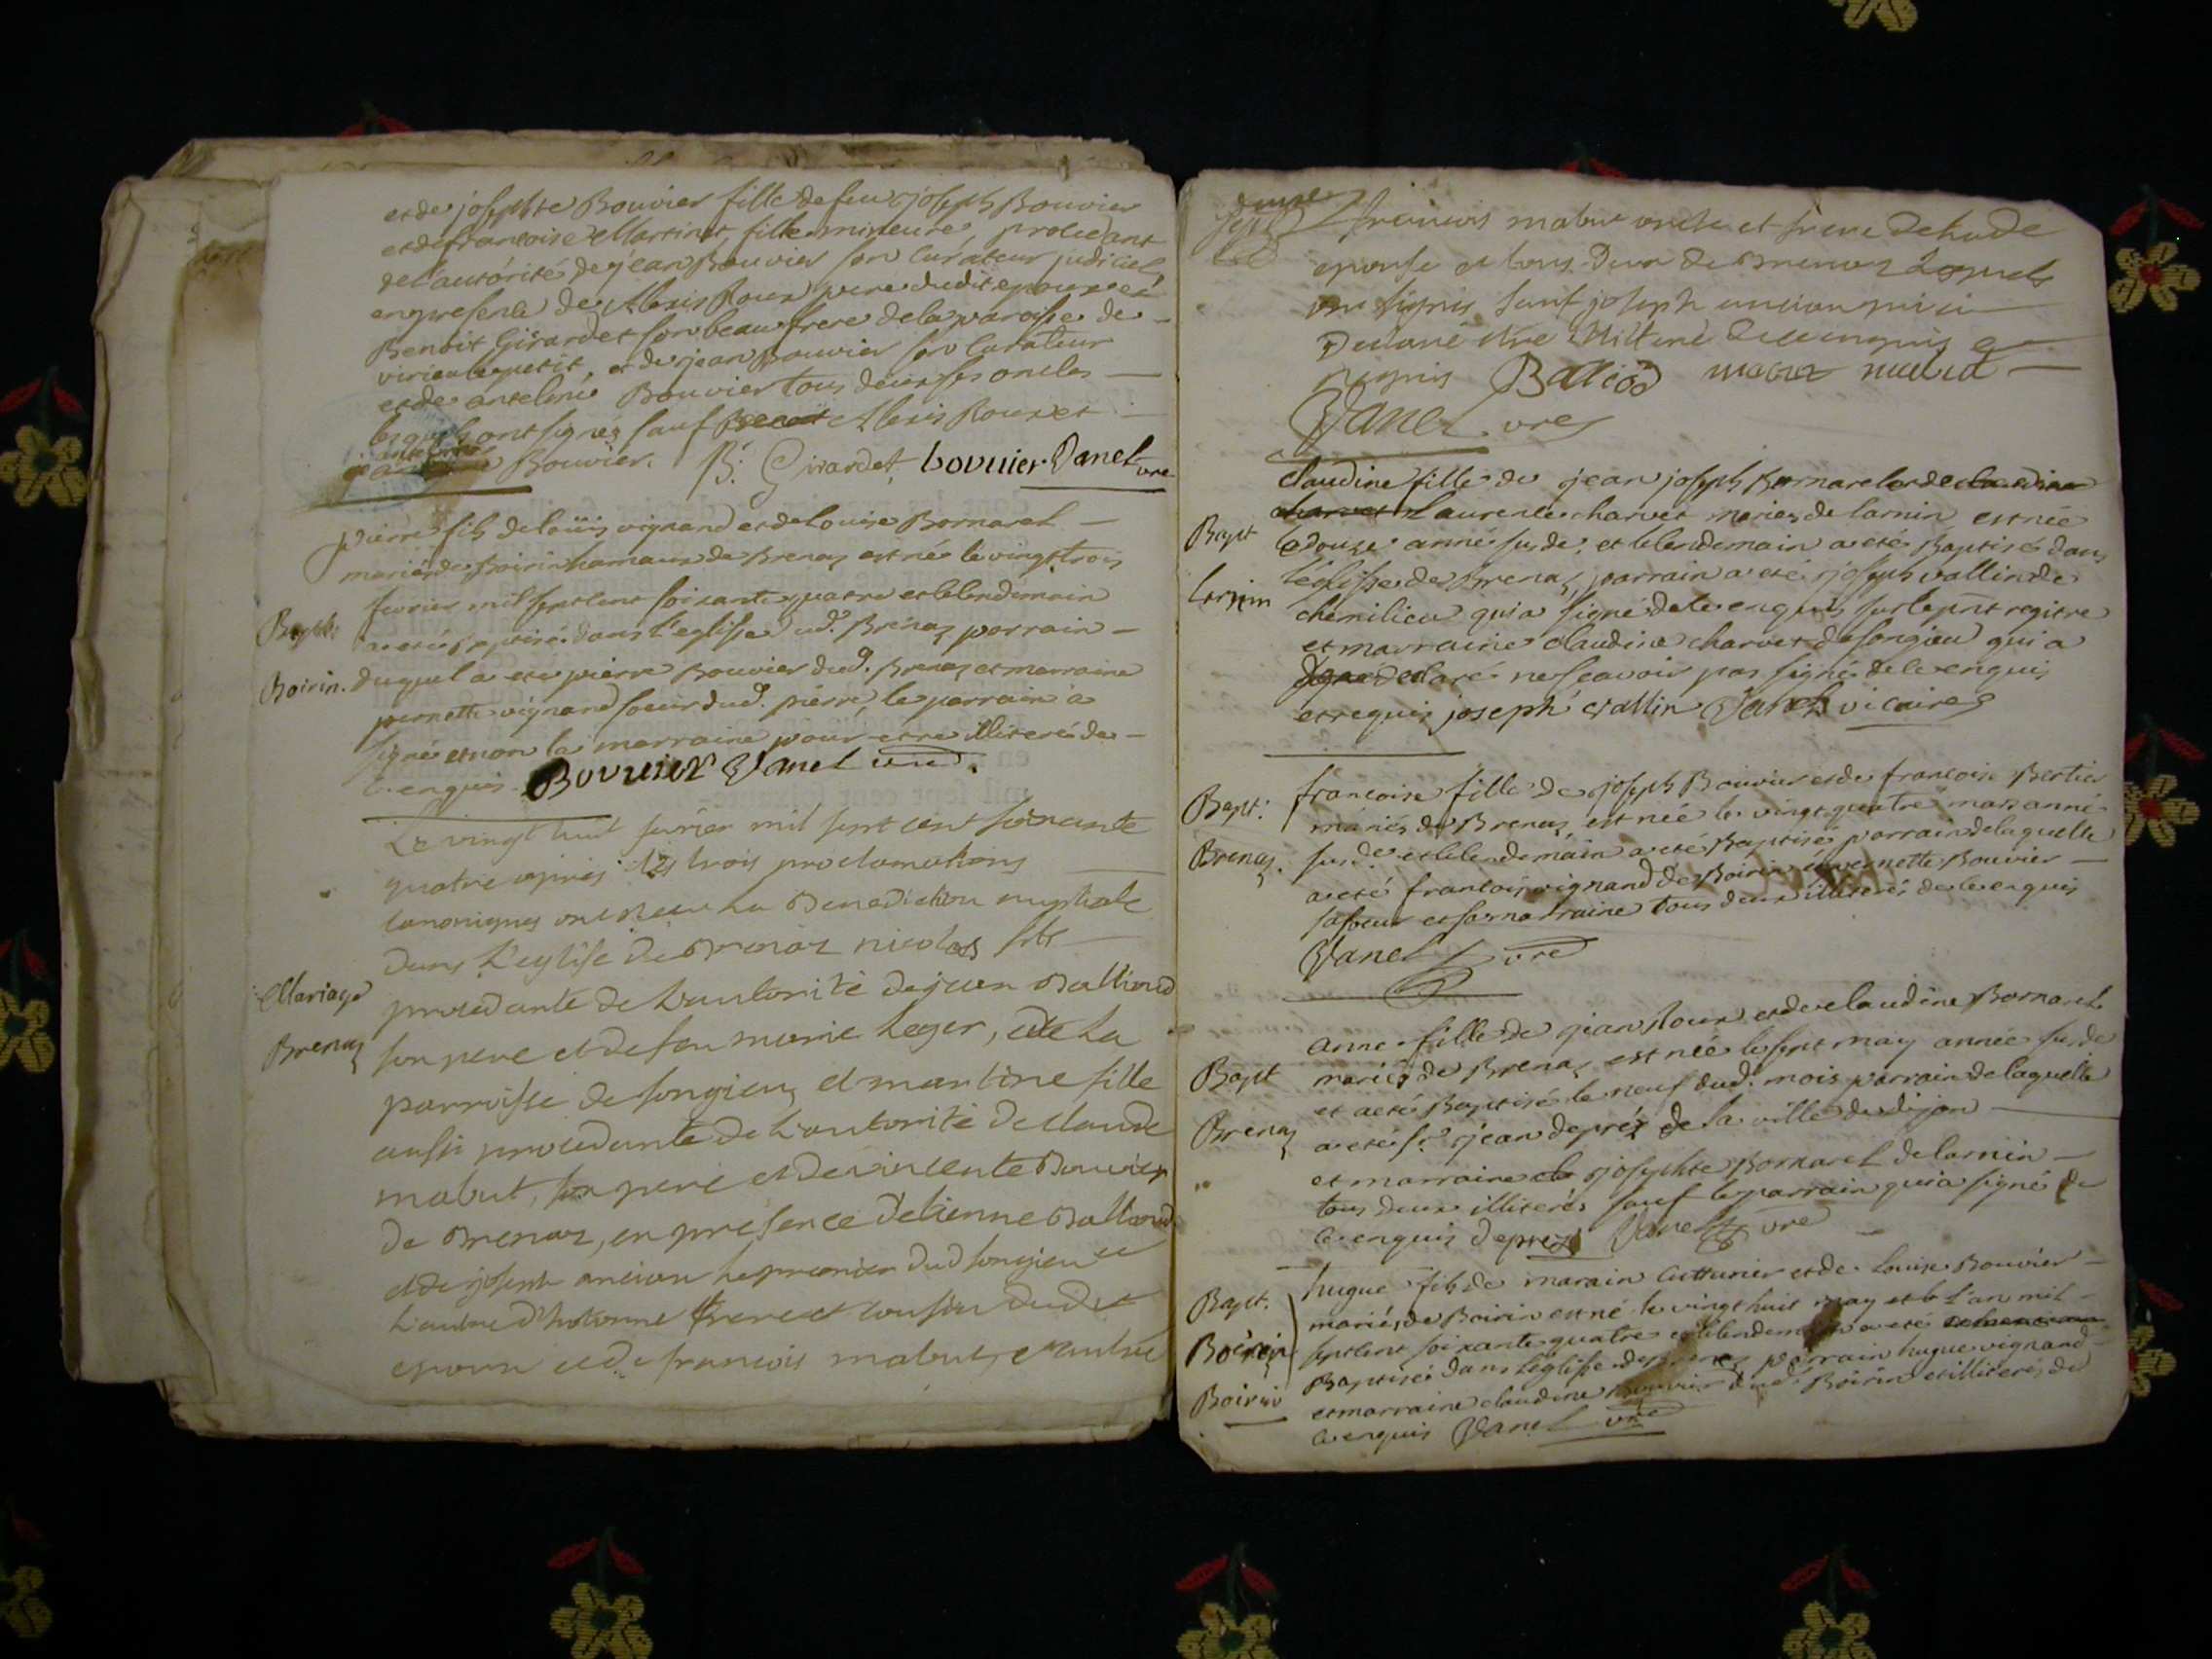 et de josephte Bouvier fille de feu joseph Bouvier
et de francoise Martinet, fille mineure, procedant
de l'autórité de jean Bouvier son curateur judiciel,
en presence de Alexis Roux pere dudit epoux et
Benoit Girardet son beau frere de la paroisse de
virieu le petit, et de jean Bouvier son curateur
et de antelme Bouvier tous deux ses oncles
lesquels ont signés sauf Alexis Roux et
antelme Bouvier. B: Girardet bovuier Vanel vre
pierre fils de loüis vignand et de louise Bornarel
mariés de Boirin hamaux de Brenaz est né le vingt trois
fevrier mil sept cent soixante quatre et le lendemain
Bapt:
a eté Baptisé dans l'eglise dud. Brenaz parrain
Boirin.
duquel a eté pierre Bouvier dud. Brenaz et marraine
pernette vignand soeur dud. pierre, le parrain a
signé et non la marraine pour etre illiteré de
ce enquis. Bovuier Vanel
Le vingt huit fevrier mil sept cent soixante
quatre apres les trois proclamations
canoniques ont reçu la Benediction nuptiale
dans l'eglise de Brenaz nicolas fils
Mariage
procedante de l'autorité de jean Balliod
Brenaz
son pere et de feu marie leger, de la
parroisse de songieu, et martine fille
aussi procedante de l'autorité de claude
mabut, son pere et de vincente Bouvier
de Brenaz, en présence d'etienne Balliod
et de joseph ancian le premier dud songieu et
l'autre d'hotonne frere et cousin dud
epoux et de francois mabut,
francois mabut oncle et frere de lade
epouse et tous deux de Brenaz lesquels
ont signés sauf joseph ancian qui a
declaré etre illiteré de ce enquis et
requis Balliod mabut
Vanel vre
claudine fille de jean joseph Bornarel et de
laurence charvet mariés de larnin est née
Bapt
le douze année susde. et le lendemain a eté Baptisé dans
l'eglisse de Brenaz, parrain a eté joseph vallin de
Larnin
chemilieu qui a signé de ce enquis sur le pnt regitre
et marraine claudine charvet de songieu qui a
declaré ne scavoir pas signé de ce enquis
et requis joseph vallin Vanel vicaire
francoise fille de joseph Bouvier et de francoise Bertier
Bapt:
mariés de Brenaz, est née le vingt quatre mars année
Brenaz.
susde et le lendemain a eté Baptisé parrain de laquelle
a eté francois vignand de Boirin et pernette Bouvier
sa soeur et sa marraine tous deux illiterés de ce enquis
Vanel vre
anne fille de jean Roux et de claudine Bornarel
Bapt
mariés de Brenaz est née le sept may année susde
et a eté Baptisé le neuf dud. mois parrain de laquelle
Brenaz
a eté sr. jean deprez de la ville de dijon
et marraine josephte Bornarel de larnin
tous deux illiterés sauf le parrain qui a signé de
ce enquis deprez Vanel vre
hugue fils de marain cuttunier et de louise Bouvier
Bapt.
mariés de Boirin est né le vingt huit may l'an mil
Boirin
sept cent soixante quatre et le lendemain a eté
Baptisé dans l'eglisse de Brenaz parrain hugue vignand
Boirin
et marraine claudine Bouvier dud. Boirin et illiterés de
ce enquis Vanel vre